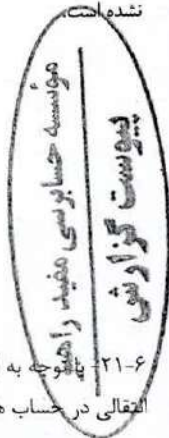 نشده است.
مؤسسه حسابرسی مفید راهبر
پیوست گزارش
۲۱-۶- باتوجه به
انتقالی در حساب ه